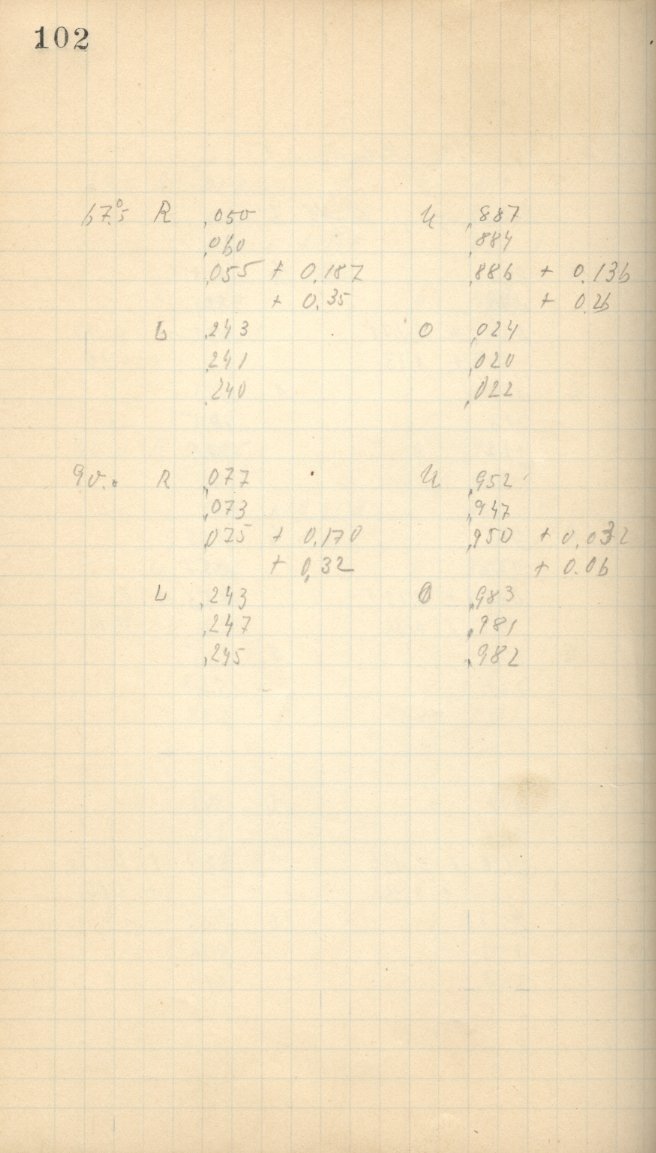 102
67°.5 R ,050 U ,887
,060 ,884
,055 + 0.187 ,886 + 0.136
+ 0.35 + 0.26
L ,243 O ,024
,241 ,020
,240 ,022
90.0 R ,077 U ,952
,073 ,947
,075 + 0.170 ,950 + 0.032
+ 0.32 + 0.06
L ,243 O ,983
,247 ,981
,245 ,982